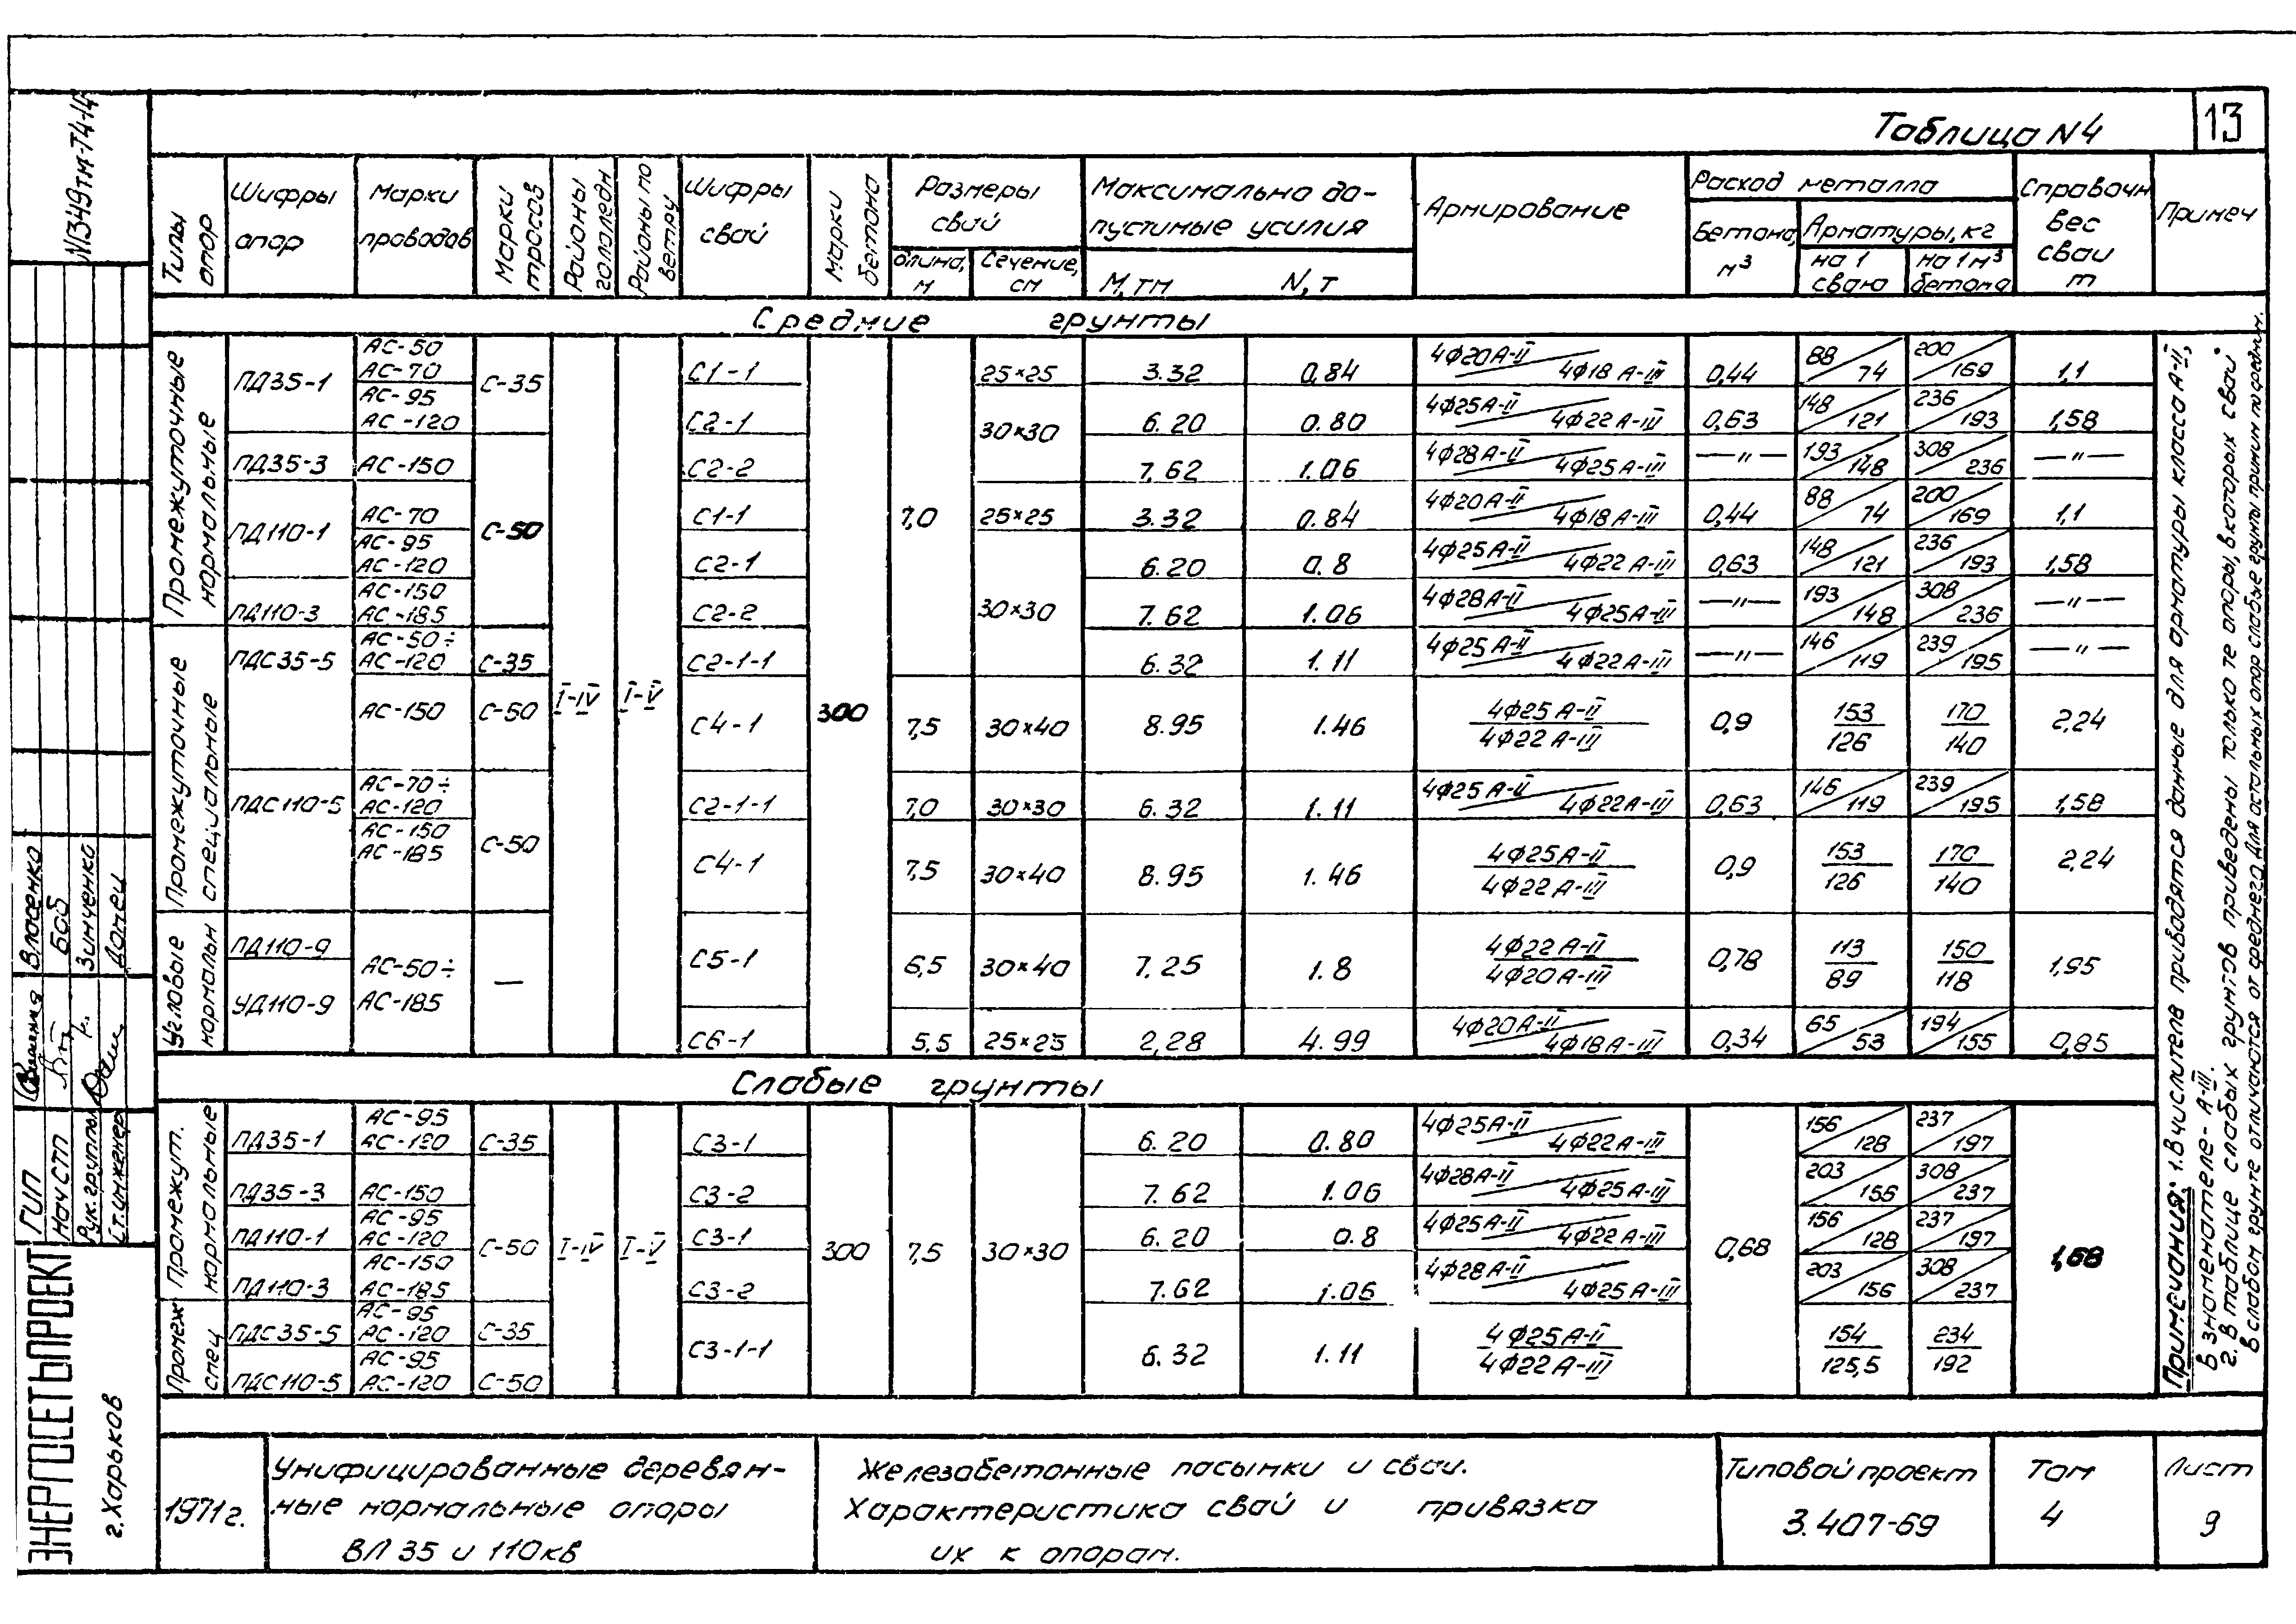 Таблица N4
13
N1349тм-Т4-14
Типы опор
Шифры опор
Марки проводов
Марки тросов
Районы гололедн
Районы по ветру
Шифры свай
Марки бетона
Размеры свай
длина, м
Сечение, см
Максимально до-
пустимые усилия
М, тм
N, т
Армирование
Расход металла
Бетона, м³
Арматуры, кг
на 1 сваю
на 1 м³ бетона
Справочн вес сваи т
Примеч
Средние грунты
Промежуточные нормальные
ПД35-1 АС-50 АС-70 С-35 С1-1 25×25 3.32 0,84 4Ф20А-II 4Ф18 А-III 0,44 88 74 200 169 1,1
АС-95 АС-120 С2-1 30×30 6.20 0.80 4Ф25А-II 4Ф22 А-III 0,63 148 121 236 193 1,58
ПД35-3 АС-150 С2-2 7,62 1.06 4Ф28А-II 4Ф25А-III —〃— 193 148 308 236 —〃—
ПД110-1 АС-70 С-50 С1-1 7,0 25×25 3.32 0.84 4Ф20А-II 4Ф18А-III 0,44 88 74 200 169 1,1
АС-95 АС-120 С2-1 6.20 0.8 4Ф25А-II 4Ф22 А-III 0,63 148 121 236 193 1,58
ПД110-3 АС-150 АС-185 С2-2 30×30 7.62 1.06 4Ф28А-II 4Ф25А-III —〃— 193 148 308 236 —〃—
Промежуточные специальные
ПДС35-5 АС-50÷ АС-120 С-35 С2-1-1 6.32 1.11 4Ф25А-II 4Ф22А-III —〃— 146 119 239 195 —〃—
I-IV I-V 300
АС-150 С-50 С4-1 7,5 30×40 8.95 1.46 4Ф25 А-II 4Ф22 А-III 0,9 153 126 170 140 2,24
ПДС110-5 АС-70÷ АС-120 С-50 С2-1-1 7,0 30×30 6.32 1.11 4Ф25 А-II 4Ф22А-III 0,63 146 119 239 195 1,58
АС-150 АС-185 С4-1 7,5 30×40 8.95 1.46 4Ф25А-II 4Ф22 А-III 0,9 153 126 170 140 2,24
Угловые нормальн
ПД110-9 УД110-9 АС-50÷ АС-185 — С5-1 6,5 30×40 7.25 1.8 4Ф22 А-II 4Ф20А-III 0,78 113 89 150 118 1,95
С6-1 5,5 25×25 2,28 4.99 4Ф20А-II 4Ф18А-III 0,34 65 53 194 155 0,85
Слабые грунты
Промежут. нормальные
ПД35-1 АС-95 АС-120 С-35 С3-1 6.20 0.80 4Ф25А-II 4Ф22А-III 156 128 237 197
ПД35-3 АС-150 С3-2 7.62 1.06 4Ф28А-II 4Ф25А-III 203 156 308 237
ПД110-1 АС-95 АС-120 С-50 С3-1 6.20 0.8 4Ф25А-II 4Ф22 А-III 156 128 237 197
I-IV I-V 300 7,5 30×30 0,68 1,68
ПД110-3 АС-150 АС-185 С3-2 7.62 1.06 4Ф28 А-II 4Ф25А-III 203 156 308 237
Промеж спец
ПДС35-5 АС-95 АС-120 С-35 С3-1-1 6.32 1.11 4Ф25А-II 4Ф22 А-III 154 125,5 234 192
ПДС110-5 АС-95 АС-120 С-50
Примечания: 1. В числителе приводятся данные для арматуры класса А-II,
в знаменателе - А-III.
2. В таблице слабых грунтов приведены только те опоры, в которых сваи
в слабом грунте отличаются от среднего. Для остальных опор слабые грунты приним по средним.
ГИП Власенко
Нач СТП Боб
Рук. группы Зинченко
Ст. инженер Донец
ЭНЕРГОСЕТЬПРОЕКТ
г. Харьков
1971г.
Унифицированные деревян-
ные нормальные опоры
ВЛ 35 и 110кв
Железобетонные пасынки и сваи.
Характеристика свай и привязка
их к опорам.
Типовой проект
3.407-69
Том
4
Лист
9